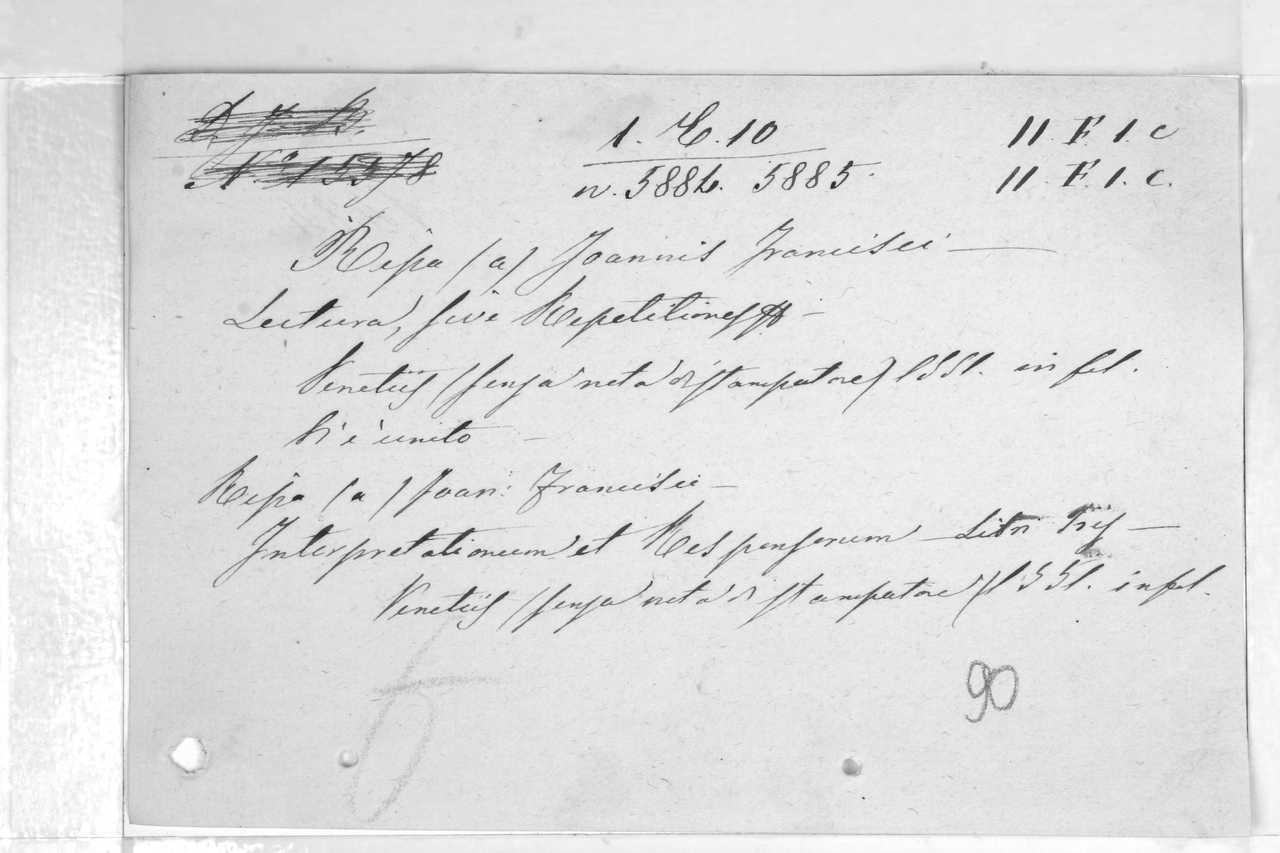 1. E. 10 11. F. 1. c
N.º 15378 n. 5884. 5885. 11. F. 1. c.
Ripa (a) Joannis Francisci —
Lectura, sive Repetitiones —
Venetiis (senza nota di stampatore) 1551. in fol.
Vi è unito —
Ripa (a) Joan: Francisci —
Interpretationum et Responsorum Libri Tres —
Venetiis (senza nota di stampatore) 1551. in fol.
90